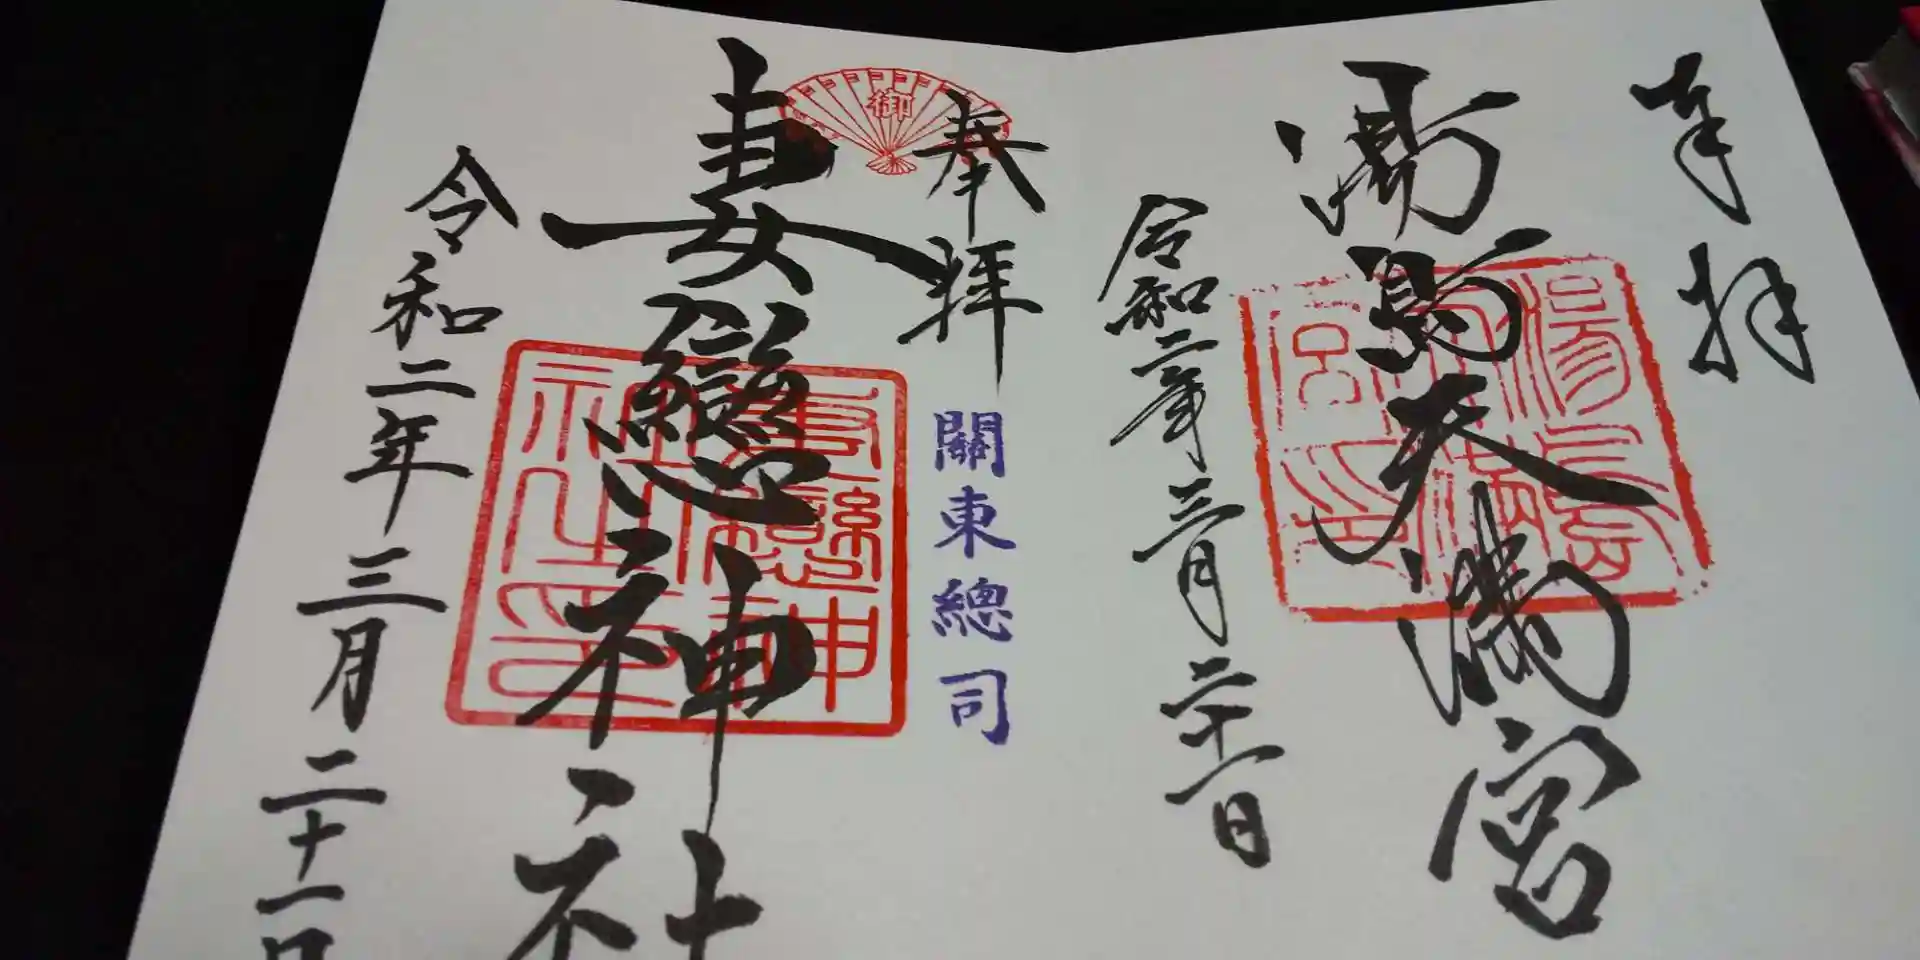 奉拝
湯島天満宮
令和二年三月二十一日
奉拝
關東總司
御
妻戀神社
妻戀神
社之印
令和二年三月二十一日